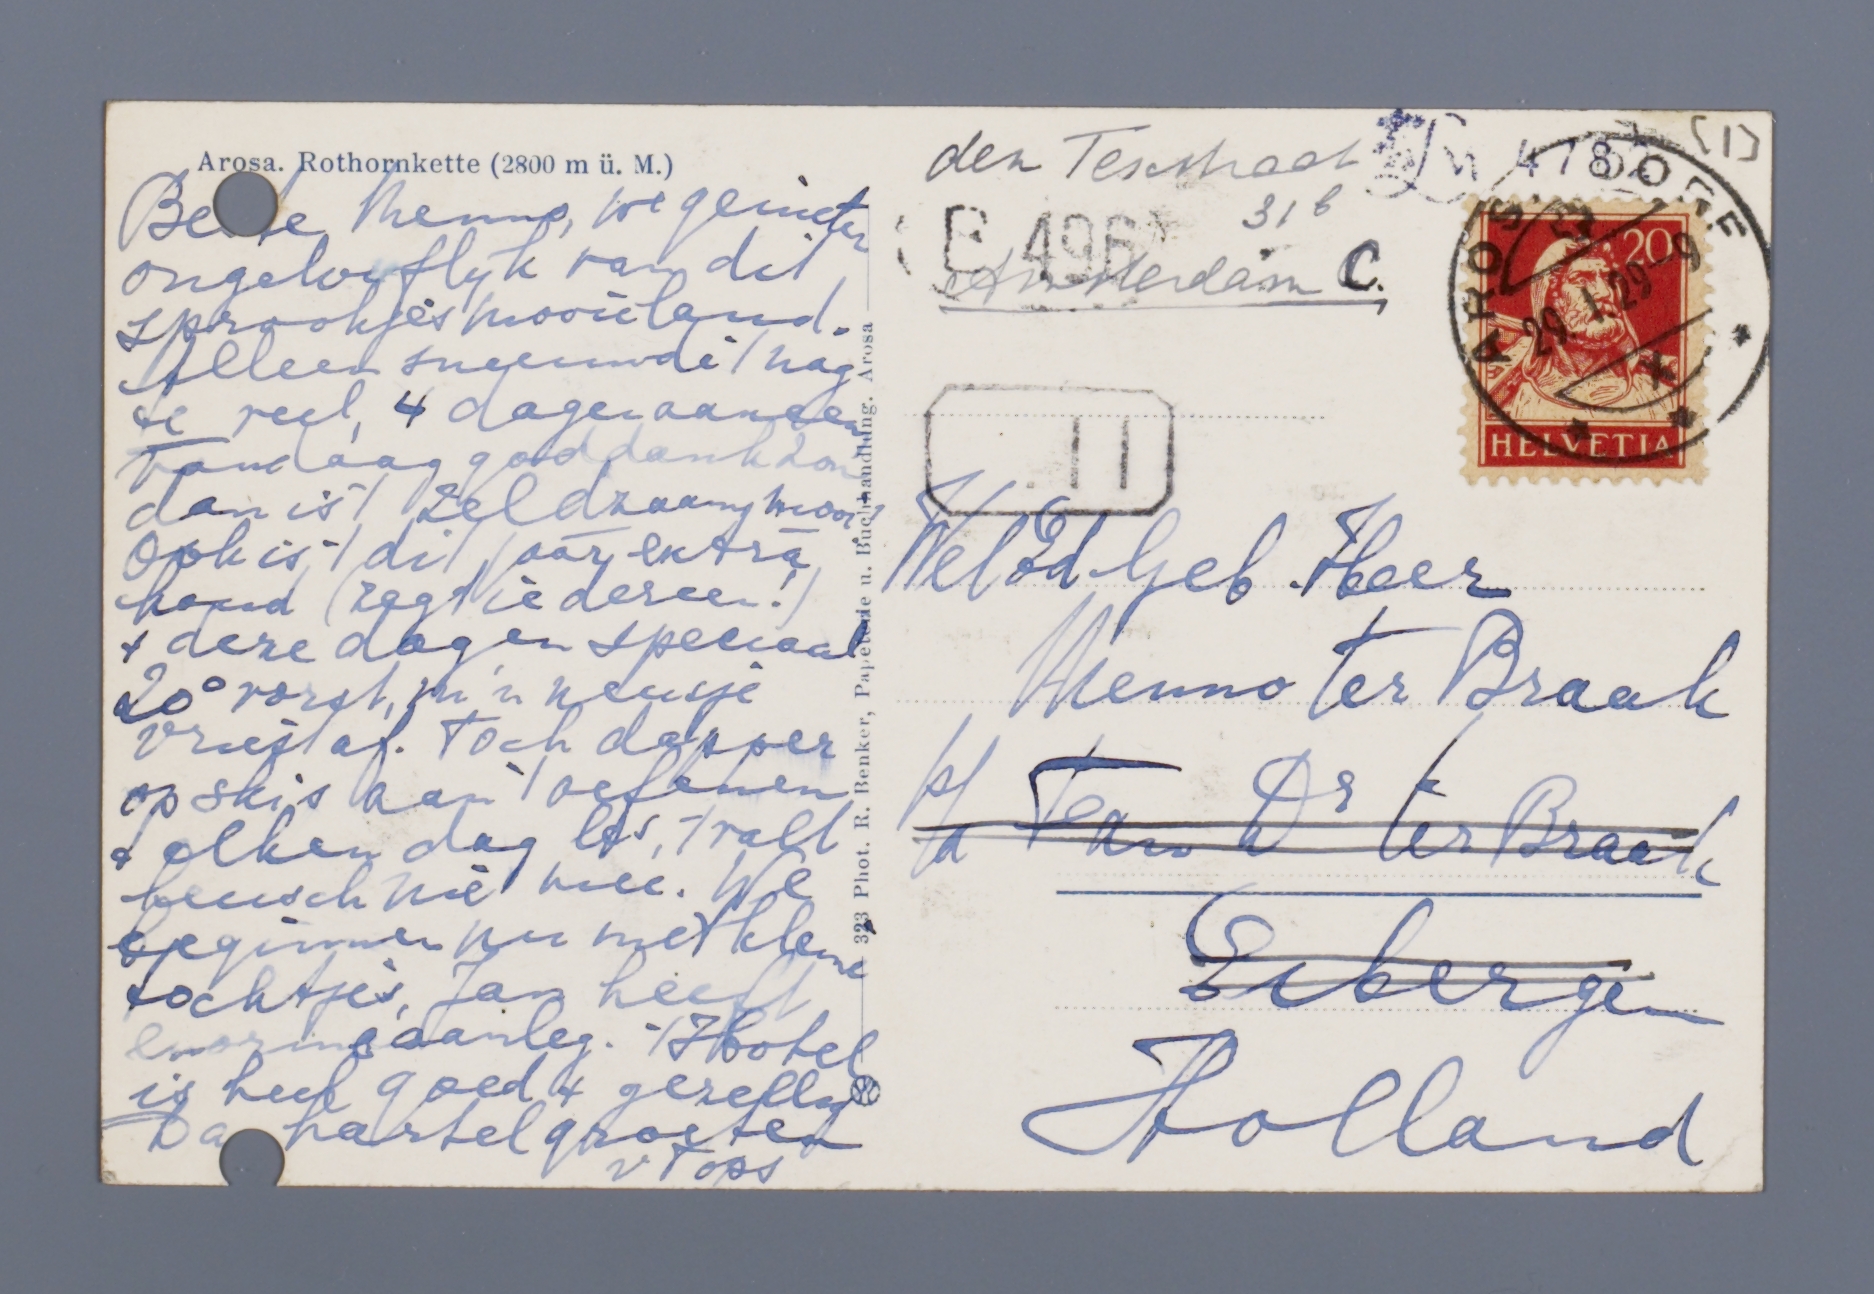 Arosa. Rothornkette (2800 m ü. M.)
Beste Menno, we genieten
ongelooflyk van dit
sprookjesmooieland.
Alleen sneeuwde 't nog
te veel, 4 dagen aaneen
Vandaag goddank zon
dan is 't zeldzaam mooi.
Ook is 't dit jaar extra
koud (zegt iedereen!)
+ deze dagen speciaal
20° vorst, m'n neusje
vriest af. Toch dapper
op skis aan 't oefenen
+ elken dag les, 't valt
heusch niet mee. We
beginnen nu met kleine
tochtjes, Jan heeft
enorme aanleg. 't Hotel
is heel goed + gezellig
Dag hartel groeten
v Tops
323 Phot. R. Benker, Papeterie u. Buchhandlung. Arosa
den Texstraat
31 b
Amsterdam C.
E 496
4782
[1]
AROSA DORF
29. I. 29 - 9
20
HELVETIA
11
Wel Ed Geb. Heer
Menno ter Braak
p/a Fam Dr ter Braak
Eibergen
Holland